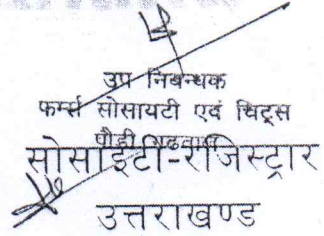 उप निबन्धक
फर्म्स सोसायटी एवं चिट्स
पौड़ी गढ़वाल
सोसाईटी-रजिस्ट्रार
उत्तराखण्ड